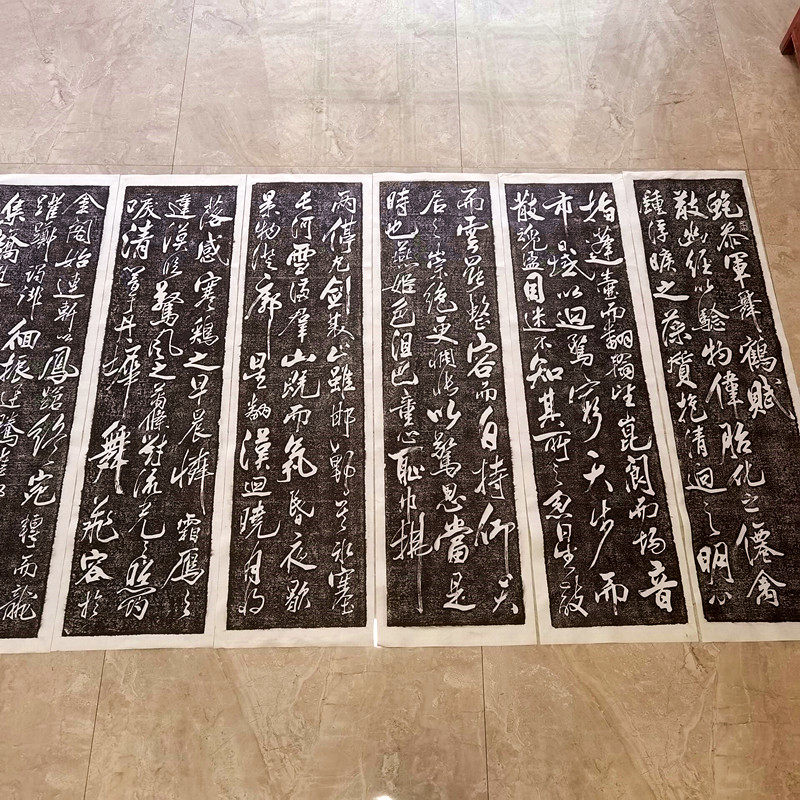 鮑參軍舞鶴賦
散幽經以驗物偉胎化之僊禽
鍾浮曠之藻質抱清迥之明心
指蓬壺而翻翰望崑閬而揚音
帀日域以迴騖窮天步而
散魂盪目迷不知其所之忽星
而雲罷整容而自持仰天
居之崇絕更惆悵以驚思當是
時也燕姬色沮巴童心恥巾拂
兩停丸劍雙止雖邯鄲其冰塞
長河雪滿羣山既而氛昏夜歇
景物澄廓星翻漢迴曉月將
落感寒鷄之早晨憐霜鴈之
違漠臨驚風之蕭條對流光之照灼
唳清響于丹墀舞飛容於
金閣始連軒以鳳蹌終宛轉而龍
躍躑躅徘徊振迅騰摧
集矯